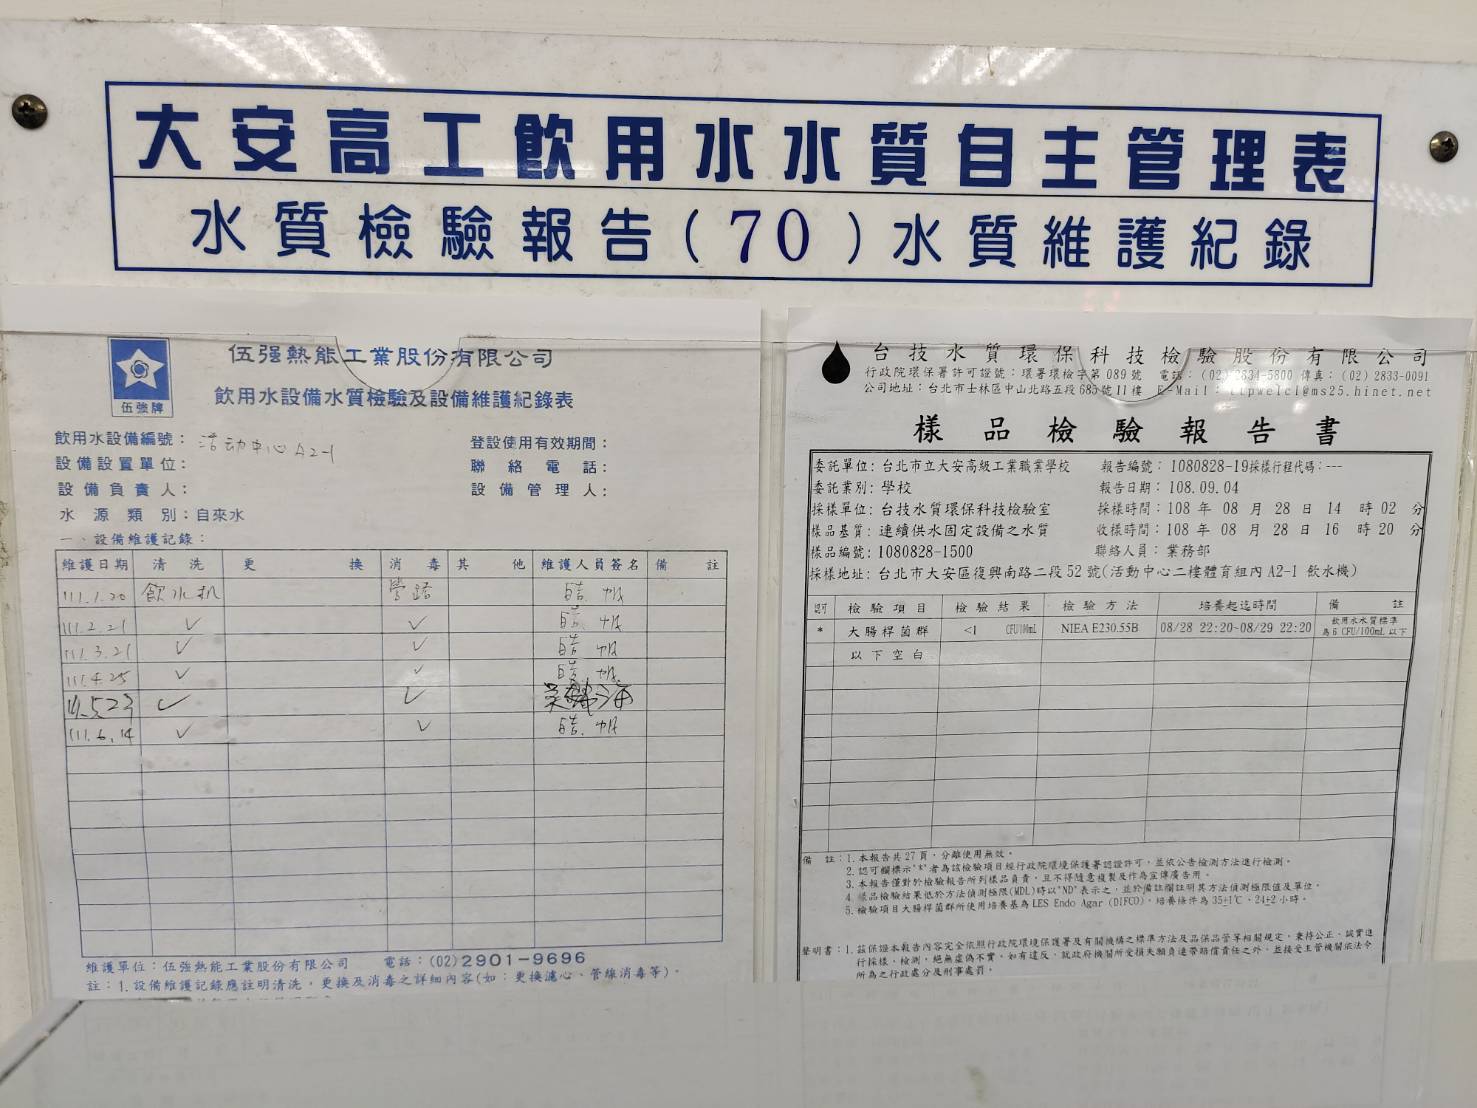 大安高工飲用水水質自主管理表
水質檢驗報告(70)水質維護紀錄
伍強牌
伍强熱能工業股份有限公司
飲用水設備水質檢驗及設備維護紀錄表
飲用水設備編號：活动中心 A2-1
登設使用有效期間：
設備設置單位：
聯絡電話：
設備負責人：
設備管理人：
水源類別：自來水
一、設備維護記錄：
維護日期 清洗 更換 消毒 其他 維護人員簽名 備註
111.1.20 飲水机 管路
111.2.21 ✓ ✓
111.3.21 ✓ ✓
111.4.25 ✓ ✓
111.5.23 ✓ ✓
111.6.14 ✓ ✓
維護單位：伍强熱能工業股份有限公司 電話：(02)2901-9696
註：1.設備維護記錄應註明清洗，更換及消毒之詳細內容(如：更換濾心、管線消毒等)。
台技水質環保科技檢驗股份有限公司
行政院環保署許可證號：環署環檢字第089號 電話：(02)2834-5800 傳真：(02)2833-0091
公司地址：台北市士林區中山北路五段685號11樓 E-Mail：
樣品檢驗報告書
委託單位：台北市立大安高級工業職業學校 報告編號：1080828-19採樣行程代碼：---
委託業別：學校 報告日期：108.09.04
採樣單位：台技水質環保科技檢驗室 採樣時間：108 年 08 月 28 日 14 時 02 分
樣品基質：連續供水固定設備之水質 收樣時間：108 年 08 月 28 日 16 時 20 分
樣品編號：1080828-1500 聯絡人員：業務部
採樣地址：台北市大安區復興南路二段52號(活動中心二樓體育組內 A2-1 飲水機)
認可 檢驗項目 檢驗結果 檢驗方法 培養起迄時間 備註
* 大腸桿菌群 <1 CFU/100mL NIEA E230.55B 08/28 22:20~08/29 22:20 飲用水水質標準
為6 CFU/100mL 以下
以下空白
備註：1.本報告共27頁，分離使用無效。
2.認可欄標示"*"者為該檢驗項目經行政院環境保護署認證許可，並依公告檢測方法進行檢測。
3.本報告僅對於檢驗報告所列樣品負責，且不得隨意複製及作為宣傳廣告用。
4.樣品檢驗結果低於方法偵測極限(MDL)時以"ND"表示之，並於備註欄註明其方法偵測極限值及單位。
5.檢驗項目大腸桿菌群所使用培養基為LES Endo Agar (DIFCO)，培養條件為35±1℃、24±2小時。
聲明書：1.茲保證本報告內容完全依照行政院環境保護署及有關機構之標準方法及品保品管等相關規定，秉持公正、誠實進
行採樣、檢測，絕無虛偽不實，如有違反，就政府機關所受損失願負連帶賠償責任之外，並接受主管機關依法令
所為之行政處分及刑事處罰。